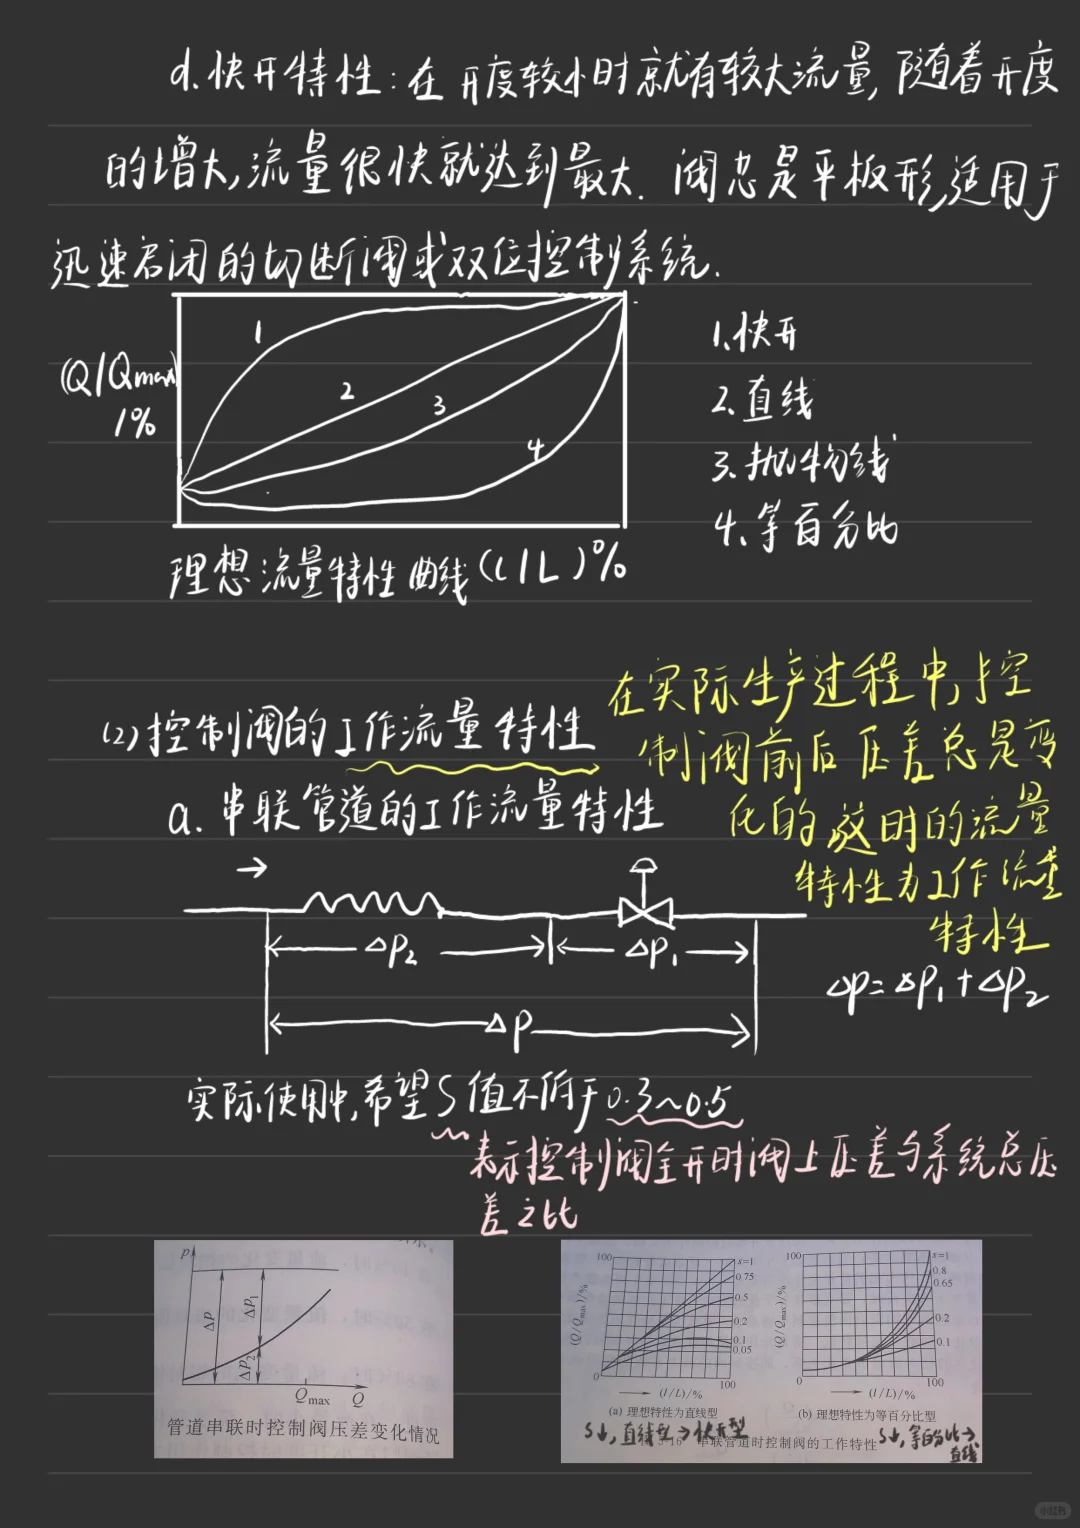 d.快开特性:在开度较小时就有较大流量,随着开度
的增大,流量很快就达到最大.阀芯是平板形,适用于
迅速启闭的切断阀或双位控制系统.
(Q/Qmax)
1%
1
2
3
4
1.快开
2.直线
3.抛物线
4.等百分比
理想流量特性曲线(l/L)%
(2)控制阀的工作流量特性
在实际生产过程中,控
制阀前后压差总是变
化的这时的流量
特性为工作流量
特性
a.串联管道的工作流量特性
ΔP2
ΔP1
ΔP
ΔP=ΔP1+ΔP2
实际使用中,希望S值不低于0.3~0.5
表示控制阀全开时阀上压差与系统总压
差之比
p
Δp
Δp1
Δp2
Qmax
Q
管道串联时控制阀压差变化情况
100
(Q/Qmax)/%
s=1
0.75
0.5
0.2
0.1
0.05
0
100
(l/L)/%
(a) 理想特性为直线型
100
(Q/Qmax)/%
s=1
0.8
0.65
0.2
0.1
0
100
(l/L)/%
(b) 理想特性为等百分比型
S↓,直线型→快开型
串联管道时控制阀的工作特性
S↓,等百分比→
直线
小红书